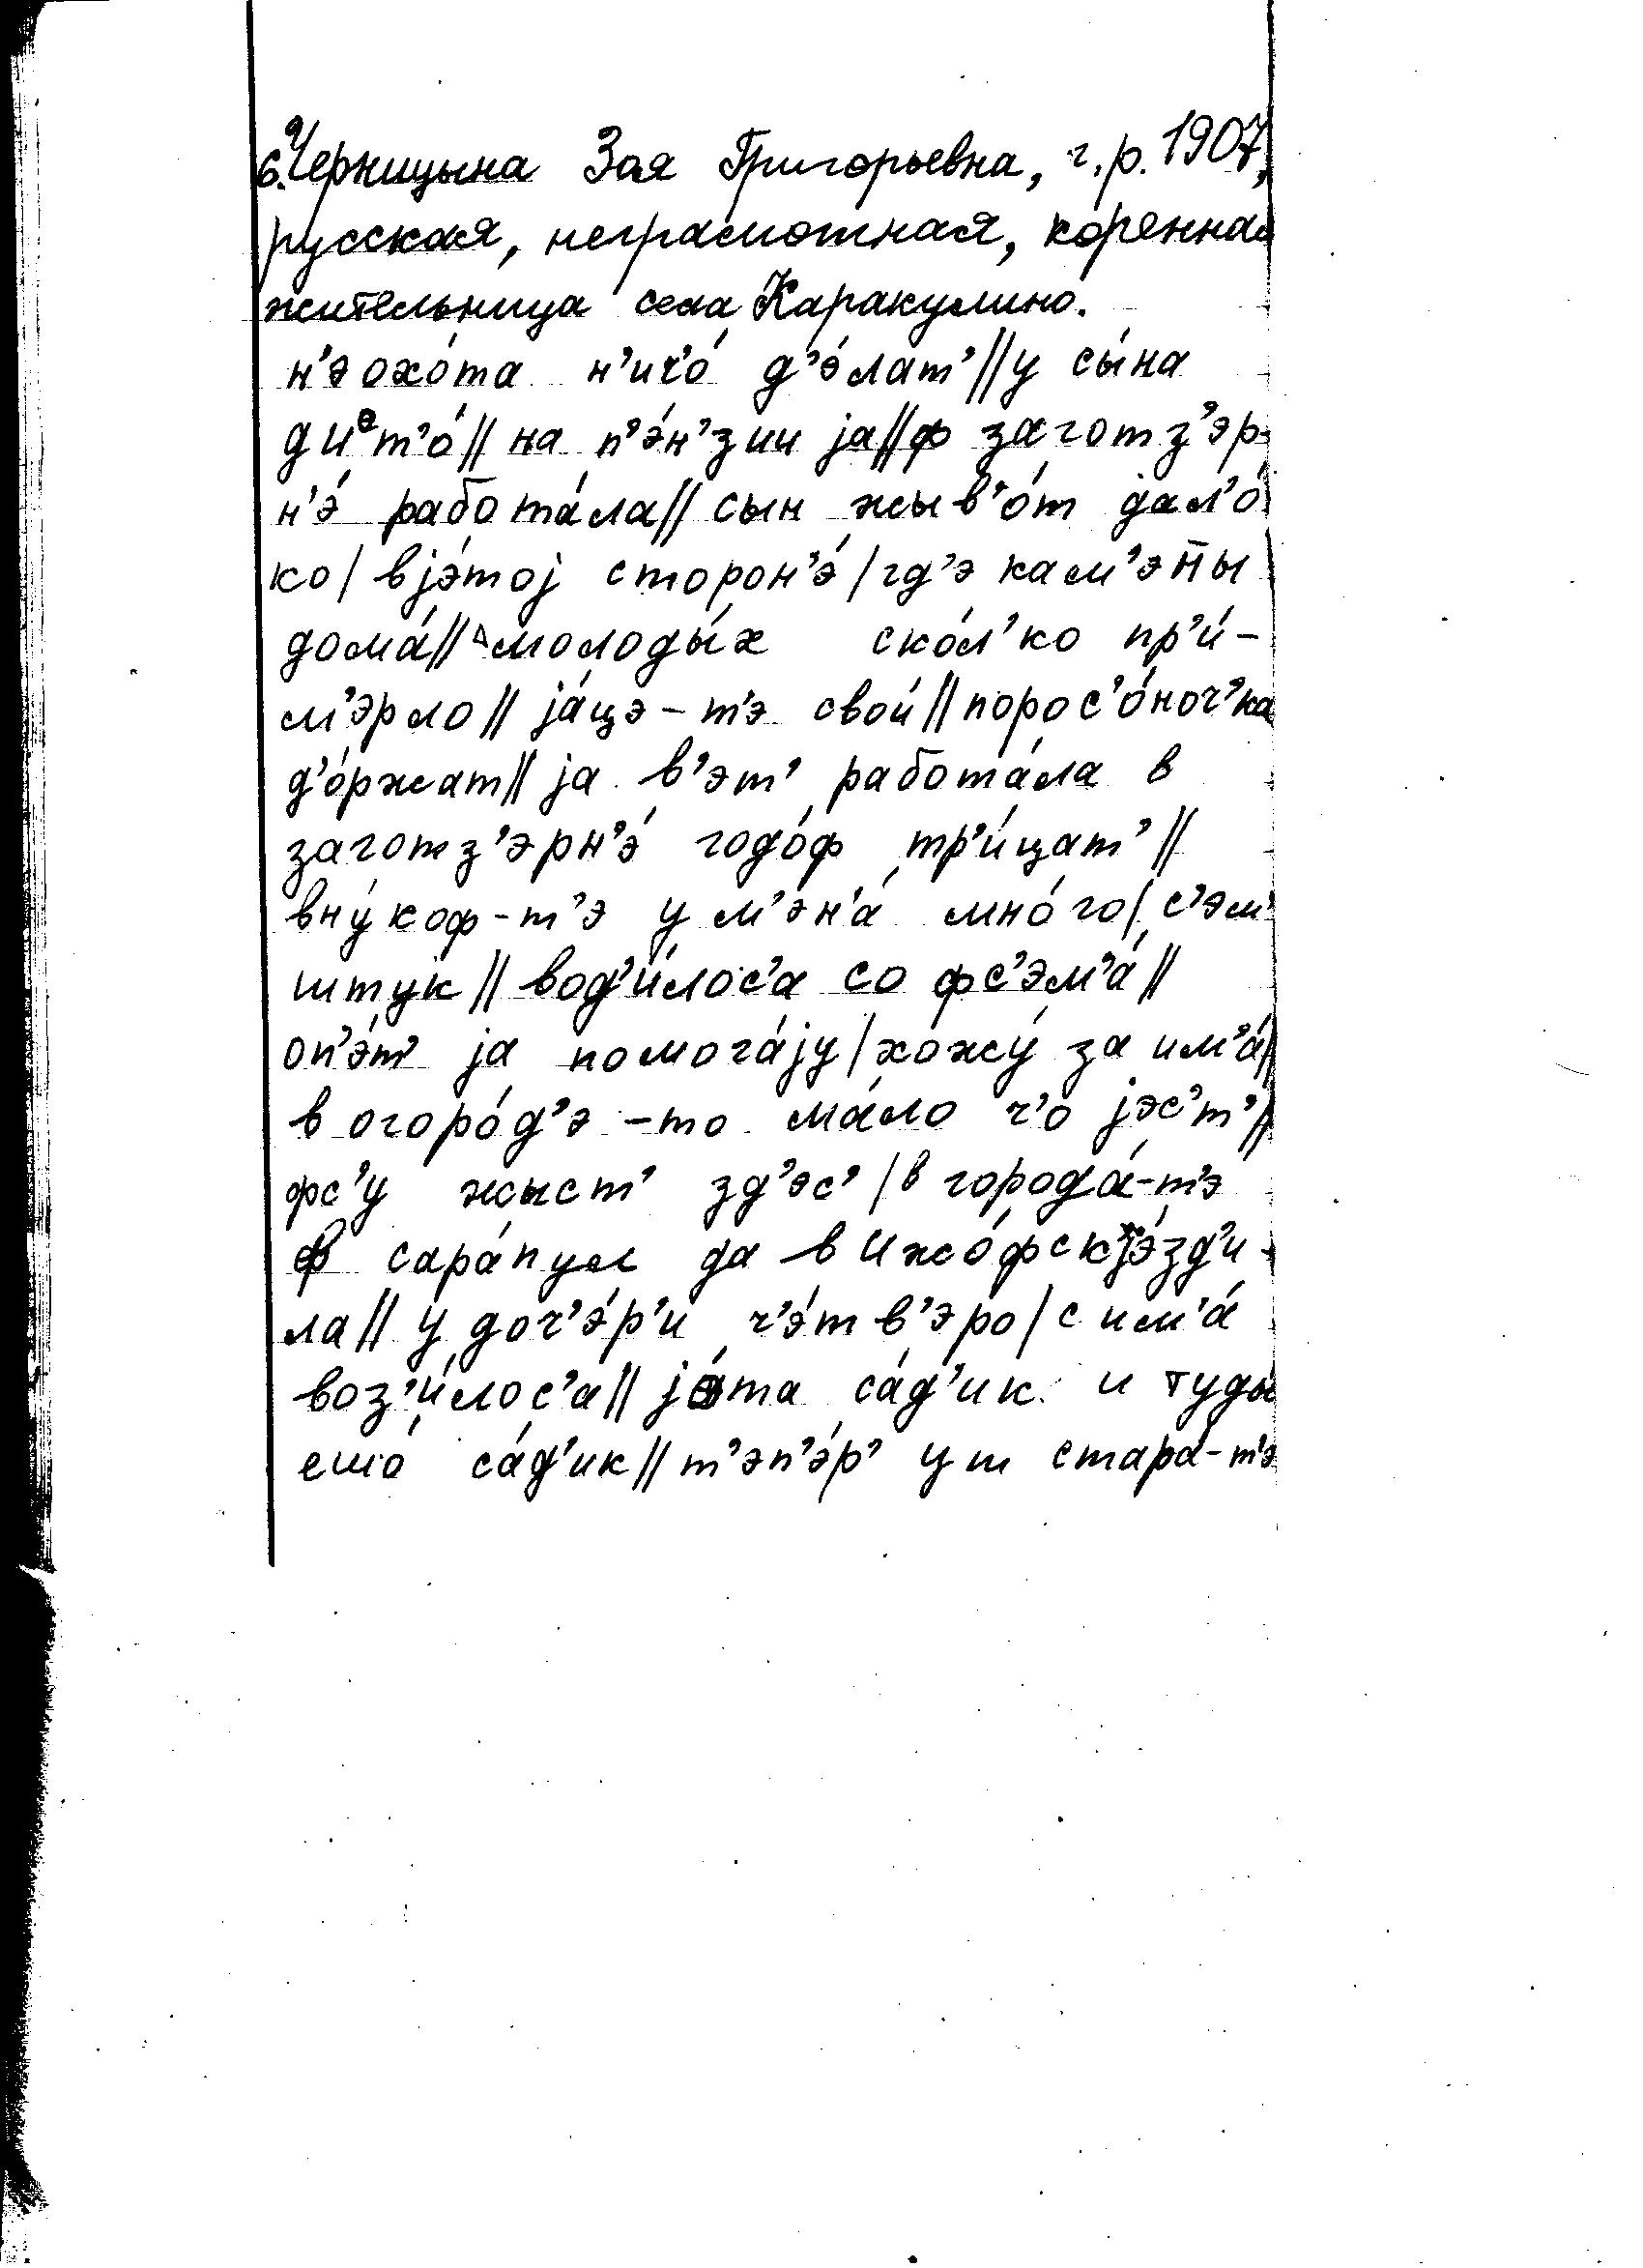 6. Черницына Зоя Григорьевна, г.р. 1907,
русская, неграмотная, коренная
жительница села Каракулино.
н’эохо́та н’ич’о́ д’э́лат’ // у сы́на
диᵉт’о́ // на п’э́н’зии jа // ф заготз’эр-
н’э́ робота́ла // сын жыв’о́т дал’о́
ко / вjэ́тоj сторон’э́ / гд’э кам’эн̄ы
дома́ // молоды́х ско́л’ко пр’и́-
м’эрло // jа́цэ-т’э свои́ // порос’о́ноч’ка
д’о́ржат // jа в’эт’ работа́ла в
заготз’эрн’э́ годо́ф тр’и́цат’ //
вну́коф-т’э у м’эн’а́ мно́го / с’эм’
штук // вод’и́лос’а со фс’эм’а́ //
оп’э́т’ jа помога́jу / хожу́ за им’а́ //
в огоро́д’э-то ма́ло ч’о jэс’т’ //
фс’у жыст’ зд’эс’ / в города́-т’э
ф сара́пул да в ижо́фск jэ́зд’и-
ла // у доч’э́р’и ч’э́тв’эро / с им’а́
воз’и́лос’а // jэ́та са́д’ик и туды
ешо́ са́д’ик // т’эп’э́р’ уш стара́-т’э